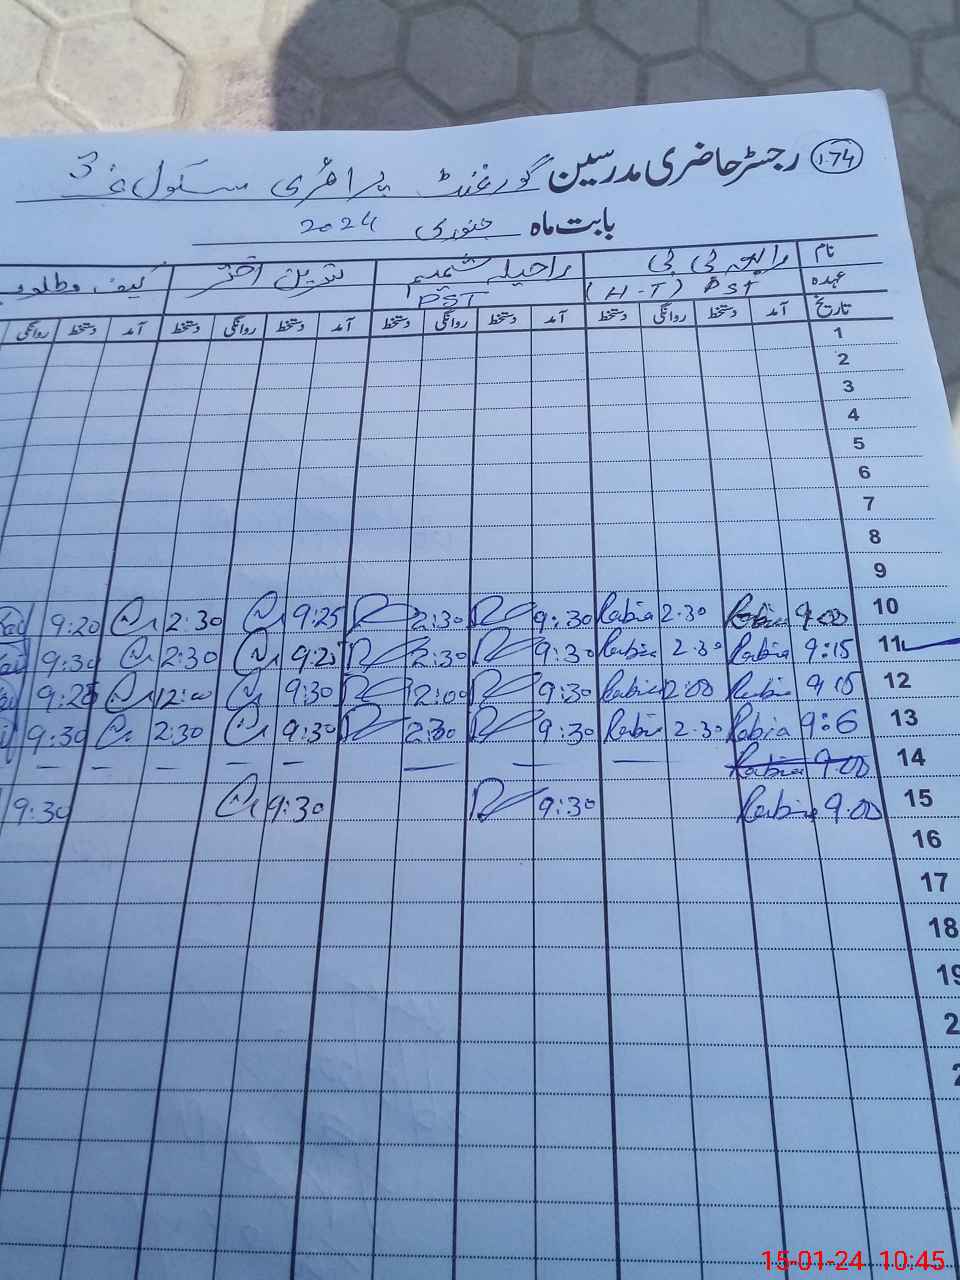 174 رجسٹر حاضری مدرسین گورنمنٹ پرائمری سکول 3
بابت ماہ جنوری 2024
نام رابعہ بی بی راحیلہ شمیم نورین اختر
عہدہ PST (H-T) PST
تاریخ آمد دستخط روانگی دستخط آمد دستخط روانگی دستخط آمد دستخط روانگی دستخط آمد دستخط روانگی
1
2
3
4
5
6
7
8
9
10 9:00 Rabia 2.30 Rabia 9:30 2:30 9:25 2:30 9:20
11 9:15 Rabia 2.30 Rabia 9:30 2:30 9:25 2:30 9:30
12 9:15 Rabia 2:00 Rabia 9:30 2:00 9:30 12:00 9:25
13 9:6 Rabia 2.30 Rabia 9:30 2:30 9:30 2:30 9:30
14 9.00 Rabia — — — — — — — —
15 9.00 Rabia 9:30 9:30 9:30
16
17
18
19
15-01-24 10:45